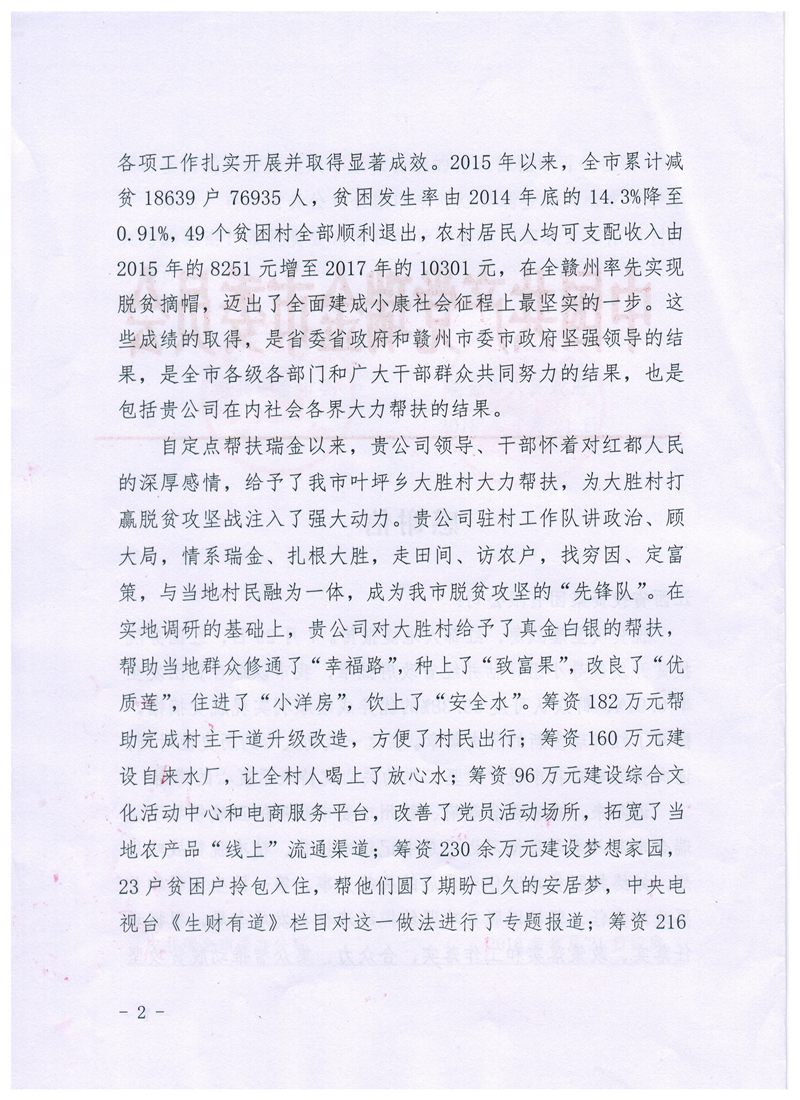 各项工作扎实开展并取得显著成效。2015年以来，全市累计减
贫18639户76935人，贫困发生率由2014年底的14.3%降至
0.91%，49个贫困村全部顺利退出，农村居民人均可支配收入由
2015年的8251元增至2017年的10301元，在全赣州率先实现
脱贫摘帽，迈出了全面建成小康社会征程上最坚实的一步。这
些成绩的取得，是省委省政府和赣州市委市政府坚强领导的结
果，是全市各级各部门和广大干部群众共同努力的结果，也是
包括贵公司在内社会各界大力帮扶的结果。
自定点帮扶瑞金以来，贵公司领导、干部怀着对红都人民
的深厚感情，给予了我市叶坪乡大胜村大力帮扶，为大胜村打
赢脱贫攻坚战注入了强大动力。贵公司驻村工作队讲政治、顾
大局，情系瑞金、扎根大胜，走田间、访农户，找穷因、定富
策，与当地村民融为一体，成为我市脱贫攻坚的“先锋队”。在
实地调研的基础上，贵公司对大胜村给予了真金白银的帮扶，
帮助当地群众修通了“幸福路”，种上了“致富果”，改良了“优
质莲”，住进了“小洋房”，饮上了“安全水”。筹资182万元帮
助完成村主干道升级改造，方便了村民出行；筹资160万元建
设自来水厂，让全村人喝上了放心水；筹资96万元建设综合文
化活动中心和电商服务平台，改善了党员活动场所，拓宽了当
地农产品“线上”流通渠道；筹资230余万元建设梦想家园，
23户贫困户拎包入住，帮他们圆了期盼已久的安居梦，中央电
视台《生财有道》栏目对这一做法进行了专题报道；筹资216
- 2 -